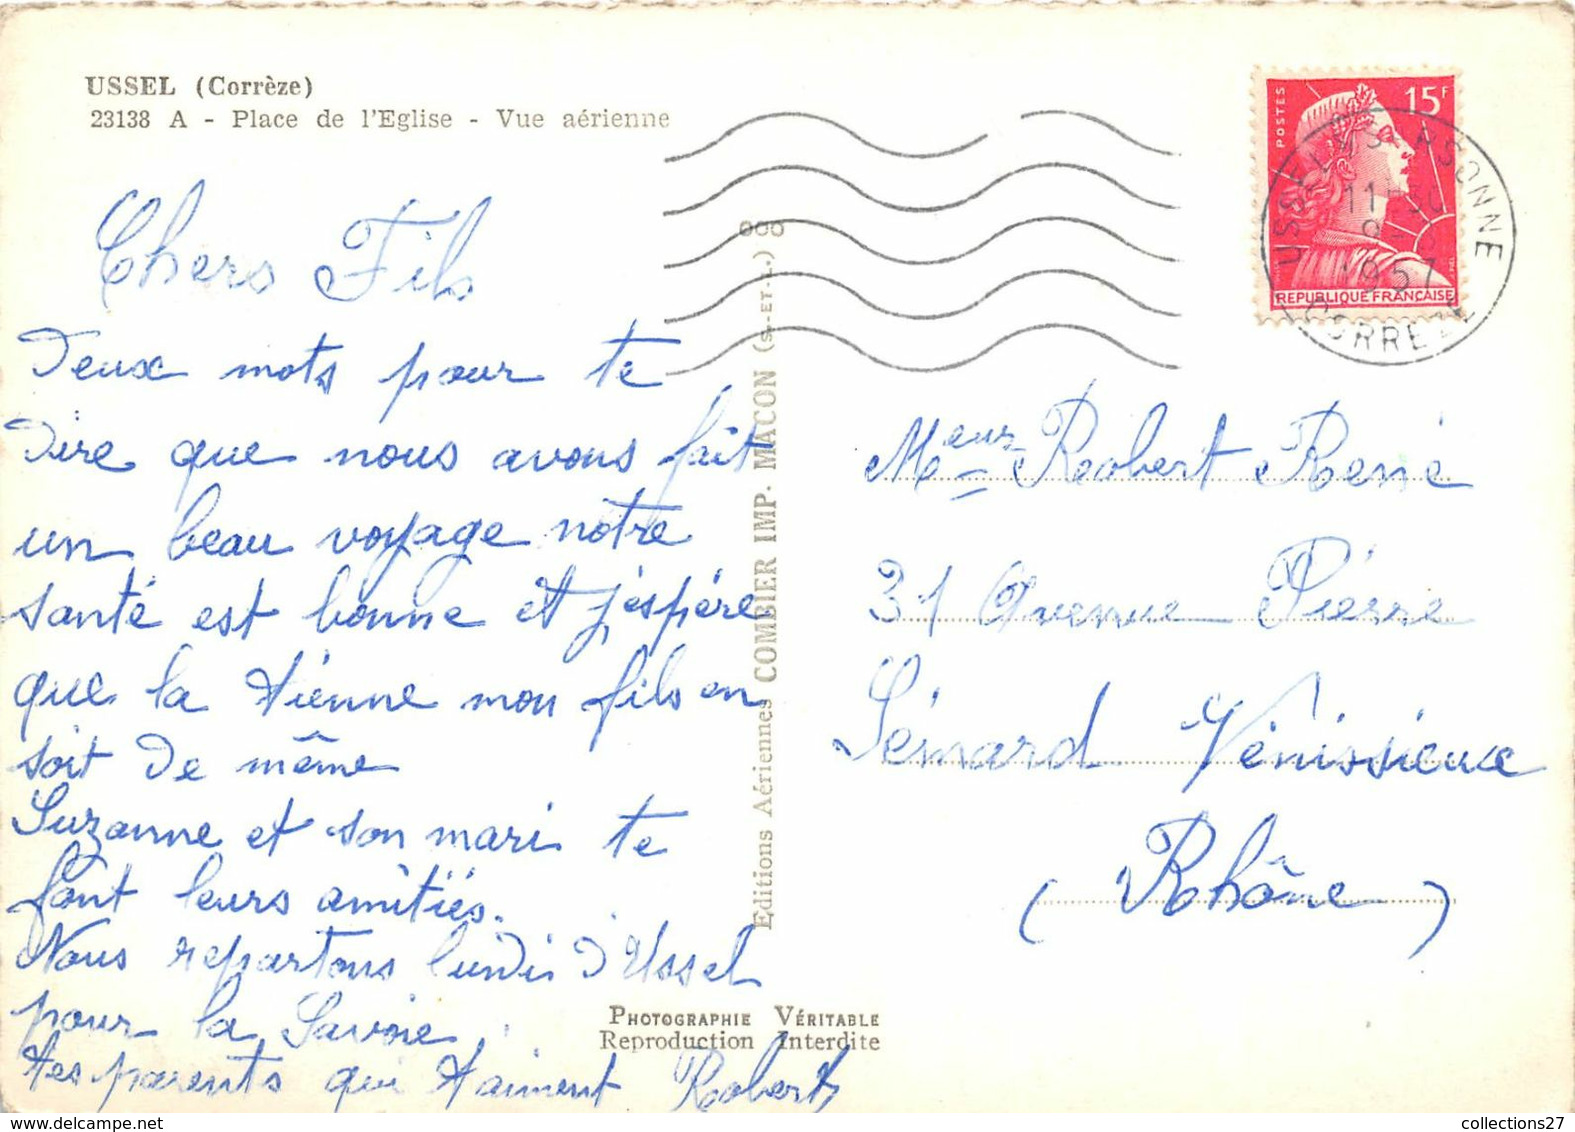 USSEL (Corrèze)
23138 A - Place de l'Eglise - Vue aérienne
Chers Fils
Deux mots pour te
dire que nous avons fait
un beau voyage notre
santé est bonne et j'éspére
que la tienne mon fils en
soit de même
Suzanne et son mari te
font leurs amitiés.
Nous repartons lundi d'Ussel
pour la Savoie.
tes parents qui t'aiment Robert
000
Editions Aériennes COMBIER IMP. MACON (S.-ET-L.)
PHOTOGRAPHIE VÉRITABLE
Reproduction Interdite
POSTES
15F
REPUBLIQUE FRANÇAISE
USSEL
11-30
1957
CORREZE
Meur Robert René
31 Avenue Pierre
Sémard Vénissieux
(Rhône)
collections27